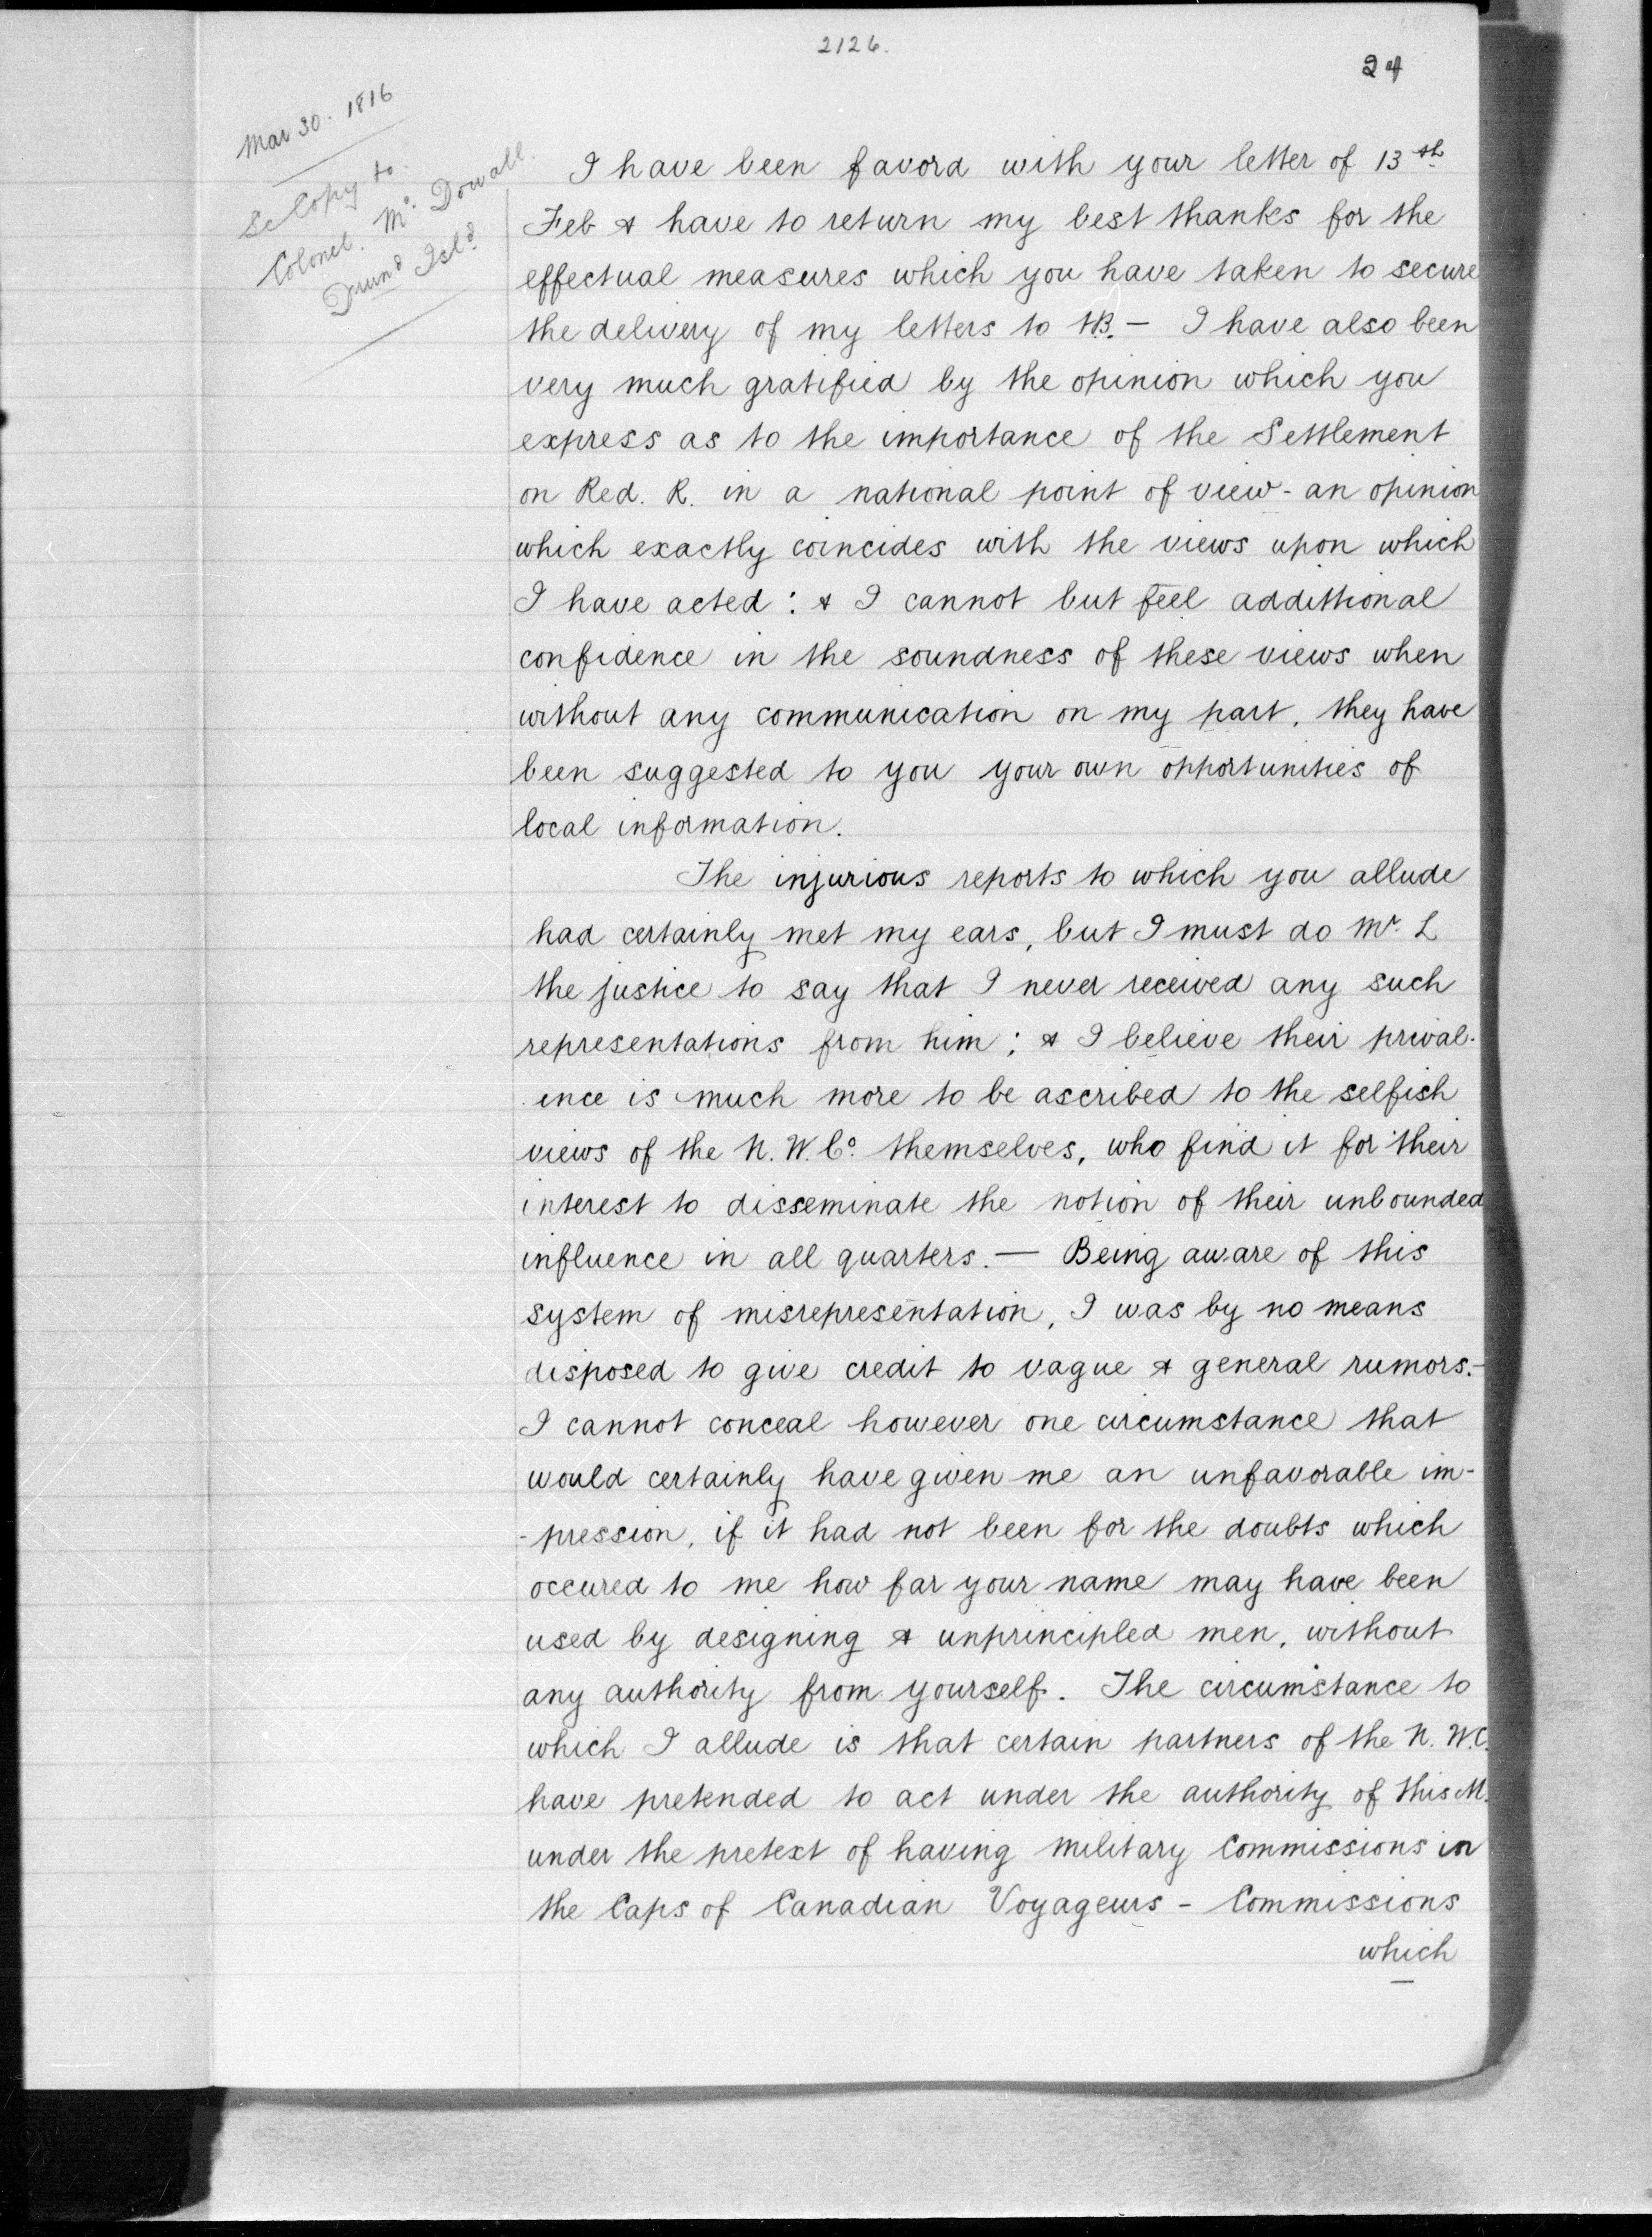 2126.
24
Mar 30. 1816
Sc Copy to
Colonel. Mc. Dowall.
Drumd Isld
I have been favord with your letter of 13th
Feb & have to return my best thanks for the
effectual measures which you have taken to secure
the delivery of my letters to HB. — I have also been
very much gratified by the opinion which you
express as to the importance of the Settlement
on Red. R. in a national point of view - an opinion
which exactly coincides with the views upon which
I have acted : & I cannot but feel additional
confidence in the soundness of these views when
without any communication on my part, they have
been suggested to you your own opportunities of
local information.
The injurious reports to which you allude
had certainly met my ears, but I must do Mr. L
the justice to say that I never received any such
representations from him ; & I believe their preval-
ence is much more to be ascribed to the selfish
views of the N. W. Co. themselves, who find it for their
interest to disseminate the notion of their unbounded
influence in all quarters. — Being aware of this
system of misrepresentation, I was by no means
disposed to give credit to vague & general rumors. -
I cannot conceal however one circumstance that
would certainly have given me an unfavorable im-
-pression, if it had not been for the doubts which
occured to me how far your name may have been
used by designing & unprincipled men, without
any authority from yourself. The circumstance to
which I allude is that certain partners of the N. W. C.
have pretended to act under the authority of this M.
under the pretext of having military Commissions in
the Caps of Canadian Voyageurs - Commissions
which